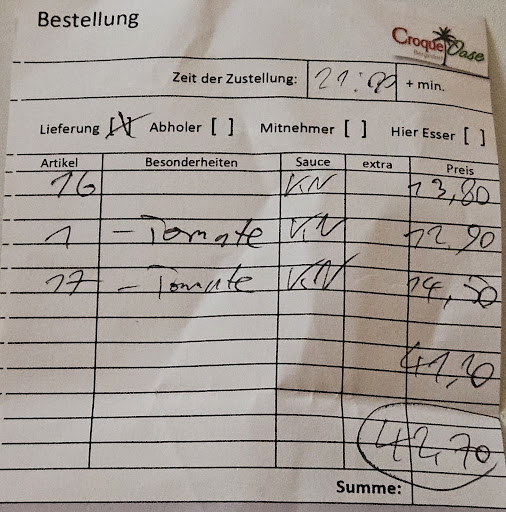 Bestellung
Croque Oase
Zeit der Zustellung: 21:00 + min.
Lieferung [X] Abholer [ ] Mitnehmer [ ] Hier Esser [ ]
Artikel Besonderheiten Sauce extra Preis
16 KN 13,80
1 - Tomate KN 12,90
17 - Tomate KN 14,50
41,20
42,70
Summe: